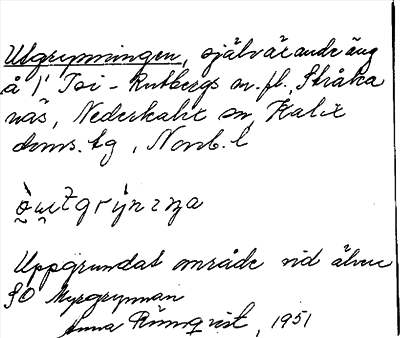 Utgrynningen, självärande äng
å 1/ Toi-Rutbergs m.fl., Stråka
näs, Nederkalix sn, Kalix
doms. tg, Norrb. l
Uppgrundat område vid älven
SO Myrgrynnan
Anna Rönnqvist, 1951